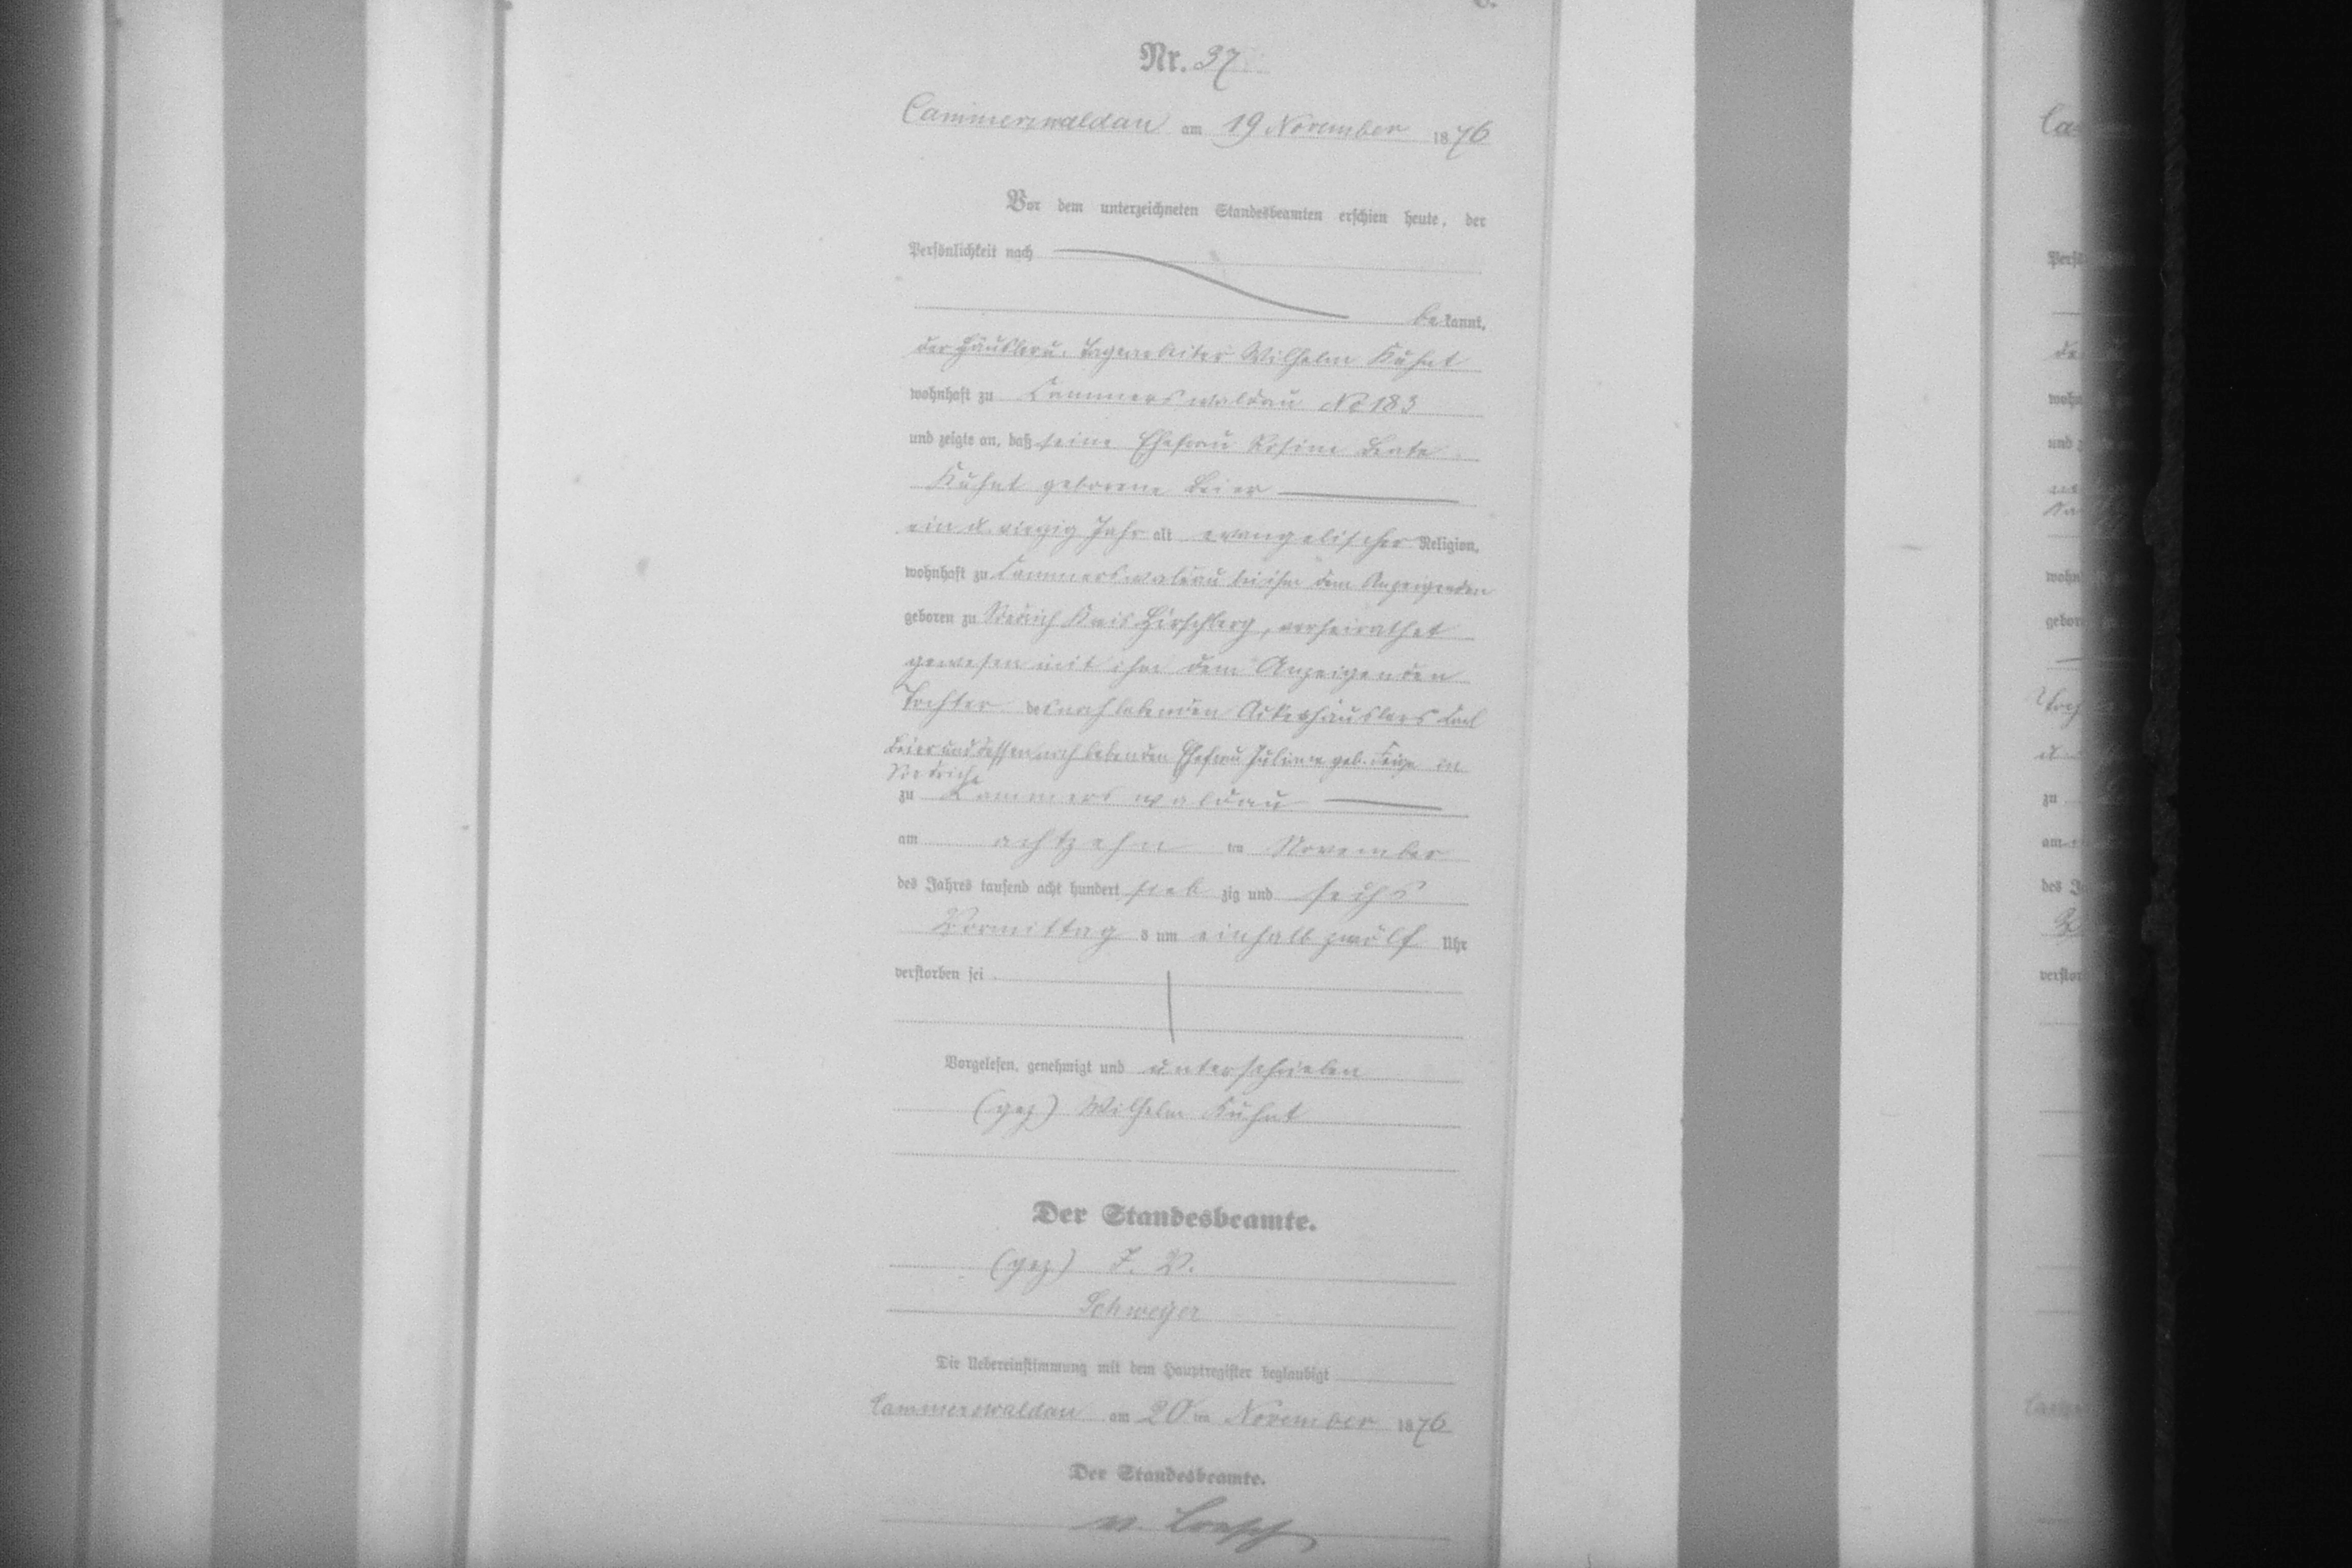 Nr. 37
Cammerswaldau am 19 November 1876
Vor dem unterzeichneten Standesbeamten erschien heute, der
Persönlichkeit nach
bekannt,
der Häusler u. Tagearbeiter Wilhelm Kühnt
wohnhaft zu Cammerswaldau No 183
und zeigte an, daß seine Ehefrau Rosine Beate
Kühnt geborene Beier
ein u. vierzig Jahr alt evangelischer Religion,
wohnhaft zu Cammerswaldau bei ihm dem Anzeigenden
geboren zu Kreis Hirschberg, verheirathet
gewesen mit ihm dem Anzeigenden
Tochter des noch lebenden Ackerhäuslers Karl
Beier und dessen noch lebenden Ehefrau Juliane geb. in
zu Cammerswaldau
am achtzehn ten November
des Jahres tausend acht hundert sieb zig und sechs
Vormittag s um einhalb zwölf Uhr
verstorben sei
Vorgelesen, genehmigt und unterschrieben
(gez) Wilhelm Kühnt
Der Standesbeamte.
(gez) I. V.
Schweyer
Die Uebereinstimmung mit dem Hauptregister beglaubigt
Cammerswaldau am 20 ten November 1876
Der Standesbeamte.
v. Loesch